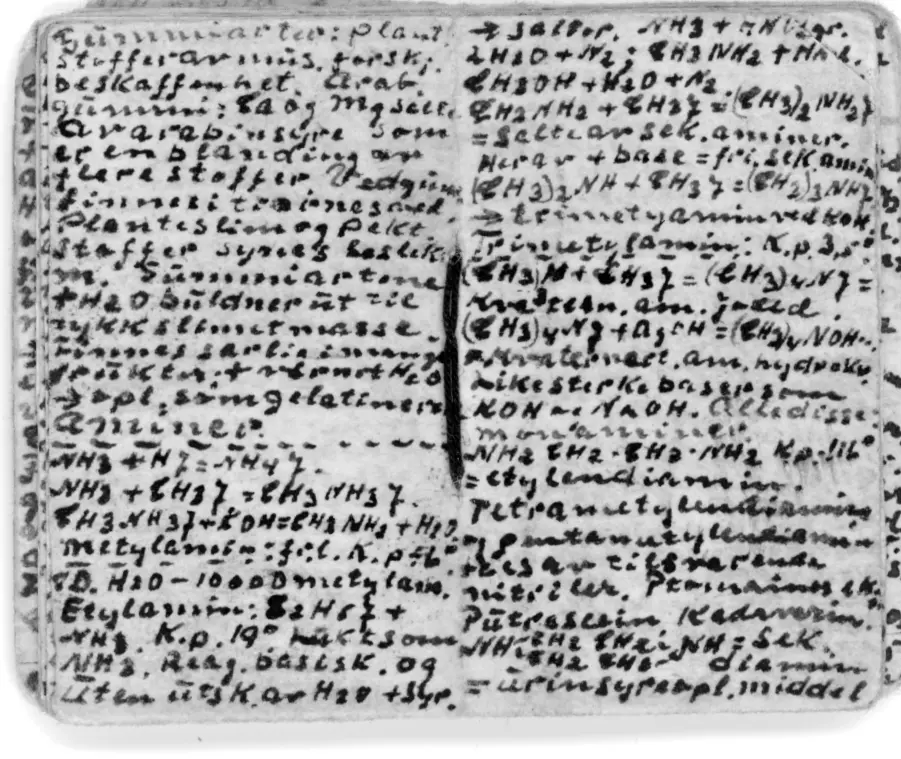 Gümmiarter: Plant.
stoffer av üüs. forsk;
beskaffenhet. Arab.
gümmi: Ca og Mg salt.
av arabinsyre som
er en blanding av
flere stoffer. Vedgüm
finnes i
Planteslim og Pekt.
stoffer synes beslekt
m. Gümmiartene
+ H2O büldner üt til
tykk slimet masse.
Finnes særlig i mange
frükter.
→ opl. som gelatinerer
Aminer.
NH3 + HJ = NH4J.
NH3 + CH3J = CH3NH3J.
CH3NH3J + KOH = CH3NH2 + H2O
Metylamin: K.p ÷6°
1D. H2O – 1000D metylam.
Etylamin: C2H5J +
NH3. K.p. 19° lükt som
NH3. Reag. basisk. og
üten ütsk. av H2O + Syr.
→ salter. NH3 +
2H2O + N2; CH3NH2 +
CH3OH + H2O + N2
CH3NH2 + CH3J = (CH3)2NH2J
= Salte av sek. aminer.
Herav + base = fri. sek. amin
(CH3)2NH + CH3J = (CH3)3NHJ
→ trimetyamin ved KOH
Trimetylamin: K.p. 3,5°
(CH3)3N + CH3J = (CH3)4NJ =
Kvatern. am. jodid.
(CH3)4NJ + AgOH = (CH3)4NOH
= Kvaternært. am. hydroksy
like sterke baser som
KOH og NaOH. Alle disse
monaminer.
NH2 CH2·CH2·NH2 Kp. 116°
= etylendiamin.
Tetrametylendiamin
og pentametylendiamin
fåes av tilsvarende
nitriler. Ptomainer, eks.
Pütrescin Kadaverin.
NH CH2 CH2 NH = Sek.
CH2 CH2 diamin
= ürinsyreopl. middel